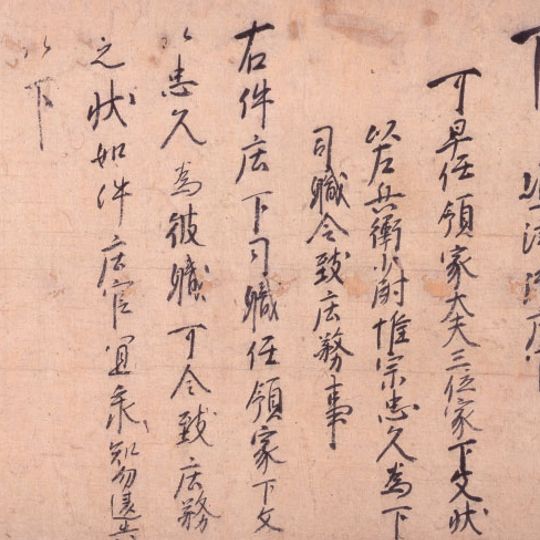 下 嶋津御庄
可早任領家大夫三位家下文状
以左兵衛少尉惟宗忠久為下
司職令致庄務事
右件庄下司職任領家下文
以忠久為彼職可令致庄務
之状如件庄官宜承知勿違失
以下